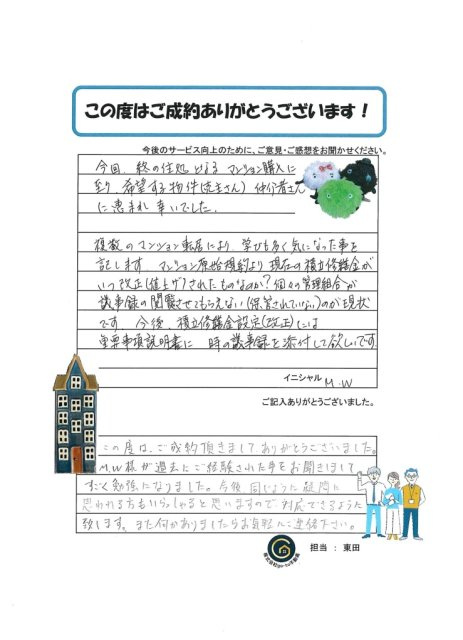 この度はご成約ありがとうございます！
今後のサービス向上のために、ご意見・ご感想をお聞かせください。
今回、終の住処となる マンション購入に
至り 希望する物件(売主さん) 仲介者さん
に恵まれ 幸いでした。
複数のマンション転居により、学びも多く気になった事を
記します。マンション原始規約より現在の積立修繕金が
いつ改正(値上げ)されたものなのか？個々の管理組合が
議事録の閲覧させてもらえない(保管されていない)のが現状
です。今後、積立修繕金設定(改正)には
重要事項説明書に 時の議事録を添付して欲しいです。
イニシャル M.W
ご記入ありがとうございました。
この度は、ご成約頂きまして、ありがとうございました。
M.W様が過去にご経験された事をお聞きしまして
すごく勉強になりました。今後 同じように疑問に
思われる方もいらっしゃると思いますので、対応できるように
致します。また何かありましたらお気軽にご連絡下さい。
担当 ： 東田